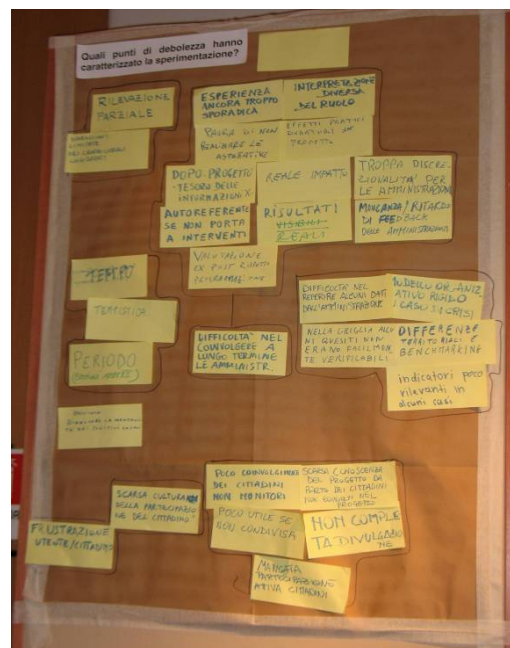 Quali punti di debolezza hanno
caratterizzato la sperimentazione?
RILEVAZIONE
PARZIALE
ESPERIENZA
ANCORA TROPPO
SPORADICA
INTERPRETAZIONE
DIVERSA
DEL RUOLO
PAURA DI NON
REALIZZARE LE
ASPETTATIVE
EFFETTI PRATICI
PROGETTO
DOPO-PROGETTO
TESORO DELLE
INFORMAZIONI X
REALE IMPATTO
TROPPA DISCRE
ZIONALITA' PER
LE AMMINISTRAZIONI
AUTOREFERENTE
SE NON PORTA
A INTERVENTI
RISULTATI
VISIBILI
REALI
MANCANZA/RITARDO
DI FEEDBACK
DELLE AMMINISTRAZIONI
VALUTAZIONE
EX POST RISPETTO
TEMPO
TEMPISTICA
PERIODO
DIFFICOLTA' NEL
COINVOLGERE A
LUNGO TERMINE
LE AMMINISTR.
DIFFICOLTA' NEL
REPERIRE ALCUNI DATI
DALL'AMMINISTRAZIONE
MODELLO ORGANIZ
ATIVO RIGIDO
NELLA GRIGLIA ALCU
NI QUESITI NON
ERANO FACILMEN
TE VERIFICABILI
DIFFERENZE
TERRITORIALI E
BENCHMARKING
indicatori poco
rilevanti in
alcuni casi
SCARSA CULTURA
DELLA PARTECIPAZIO
NE DEL CITTADINO
FRUSTRAZIONE
UTENTE/CITTADINO
POCO COINVOLGIMENTO
DEI CITTADINI
NON MONITORI
SCARSA CONOSCENZA
DEL PROGETTO DA
PARTE DEI CITTADINI
NON COINVOLTI NEL
PROGETTO
POCO UTILE SE
NON CONDIVISA
NON COMPLE
TA DIVULGAZIO
NE
MANCATA
PARTECIPAZIONE
ATTIVA CITTADINI